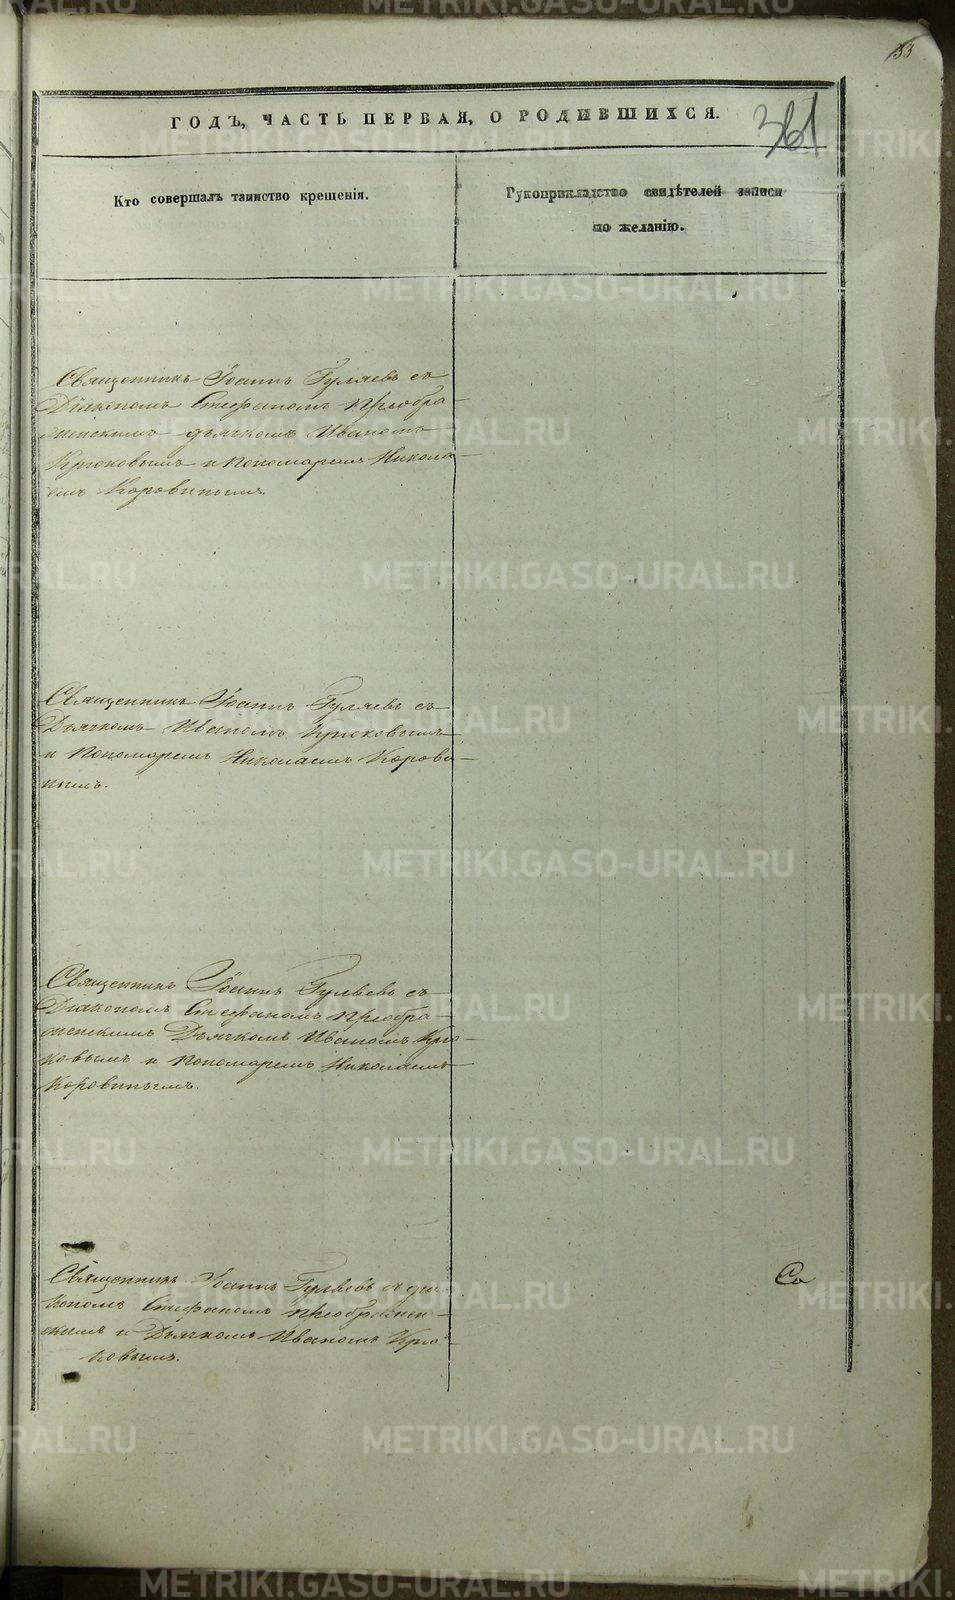 33
ГОДЪ, ЧАСТЬ ПЕРВАЯ, О РОДИВШИХСЯ.
361
Кто совершалъ таинство крещенія.
Рукоприкладство свидѣтелей записи
по желанію.
Священникъ Іоаннъ Гуляевъ съ
Діакономъ Стефаномъ Преобра-
женскимъ дьячкомъ Иваномъ
Крюковымъ и Пономаремъ Никола-
емъ Коровинымъ.
Священникъ Іоаннъ Гуляевъ съ
Дьячкомъ Иваномъ Крюковымъ
и Пономаремъ Николаемъ Корови-
нымъ.
Священникъ Іоаннъ Гуляевъ съ
Діакономъ Стефаномъ Преобра-
женскимъ Дьячкомъ Иваномъ Крю-
ковымъ и Пономаремъ Николаемъ
Коровинымъ.
Священникъ Іоаннъ Гуляевъ съ діа-
кономъ Стефаномъ Преображен-
скимъ и Дьячкомъ Иваномъ Крю-
ковымъ.
Со
METRIKI.GASO-URAL.RU